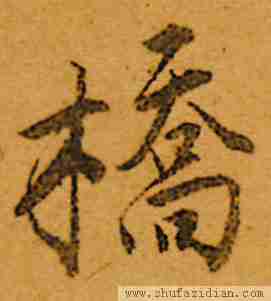 橋
www.shufazidian.com